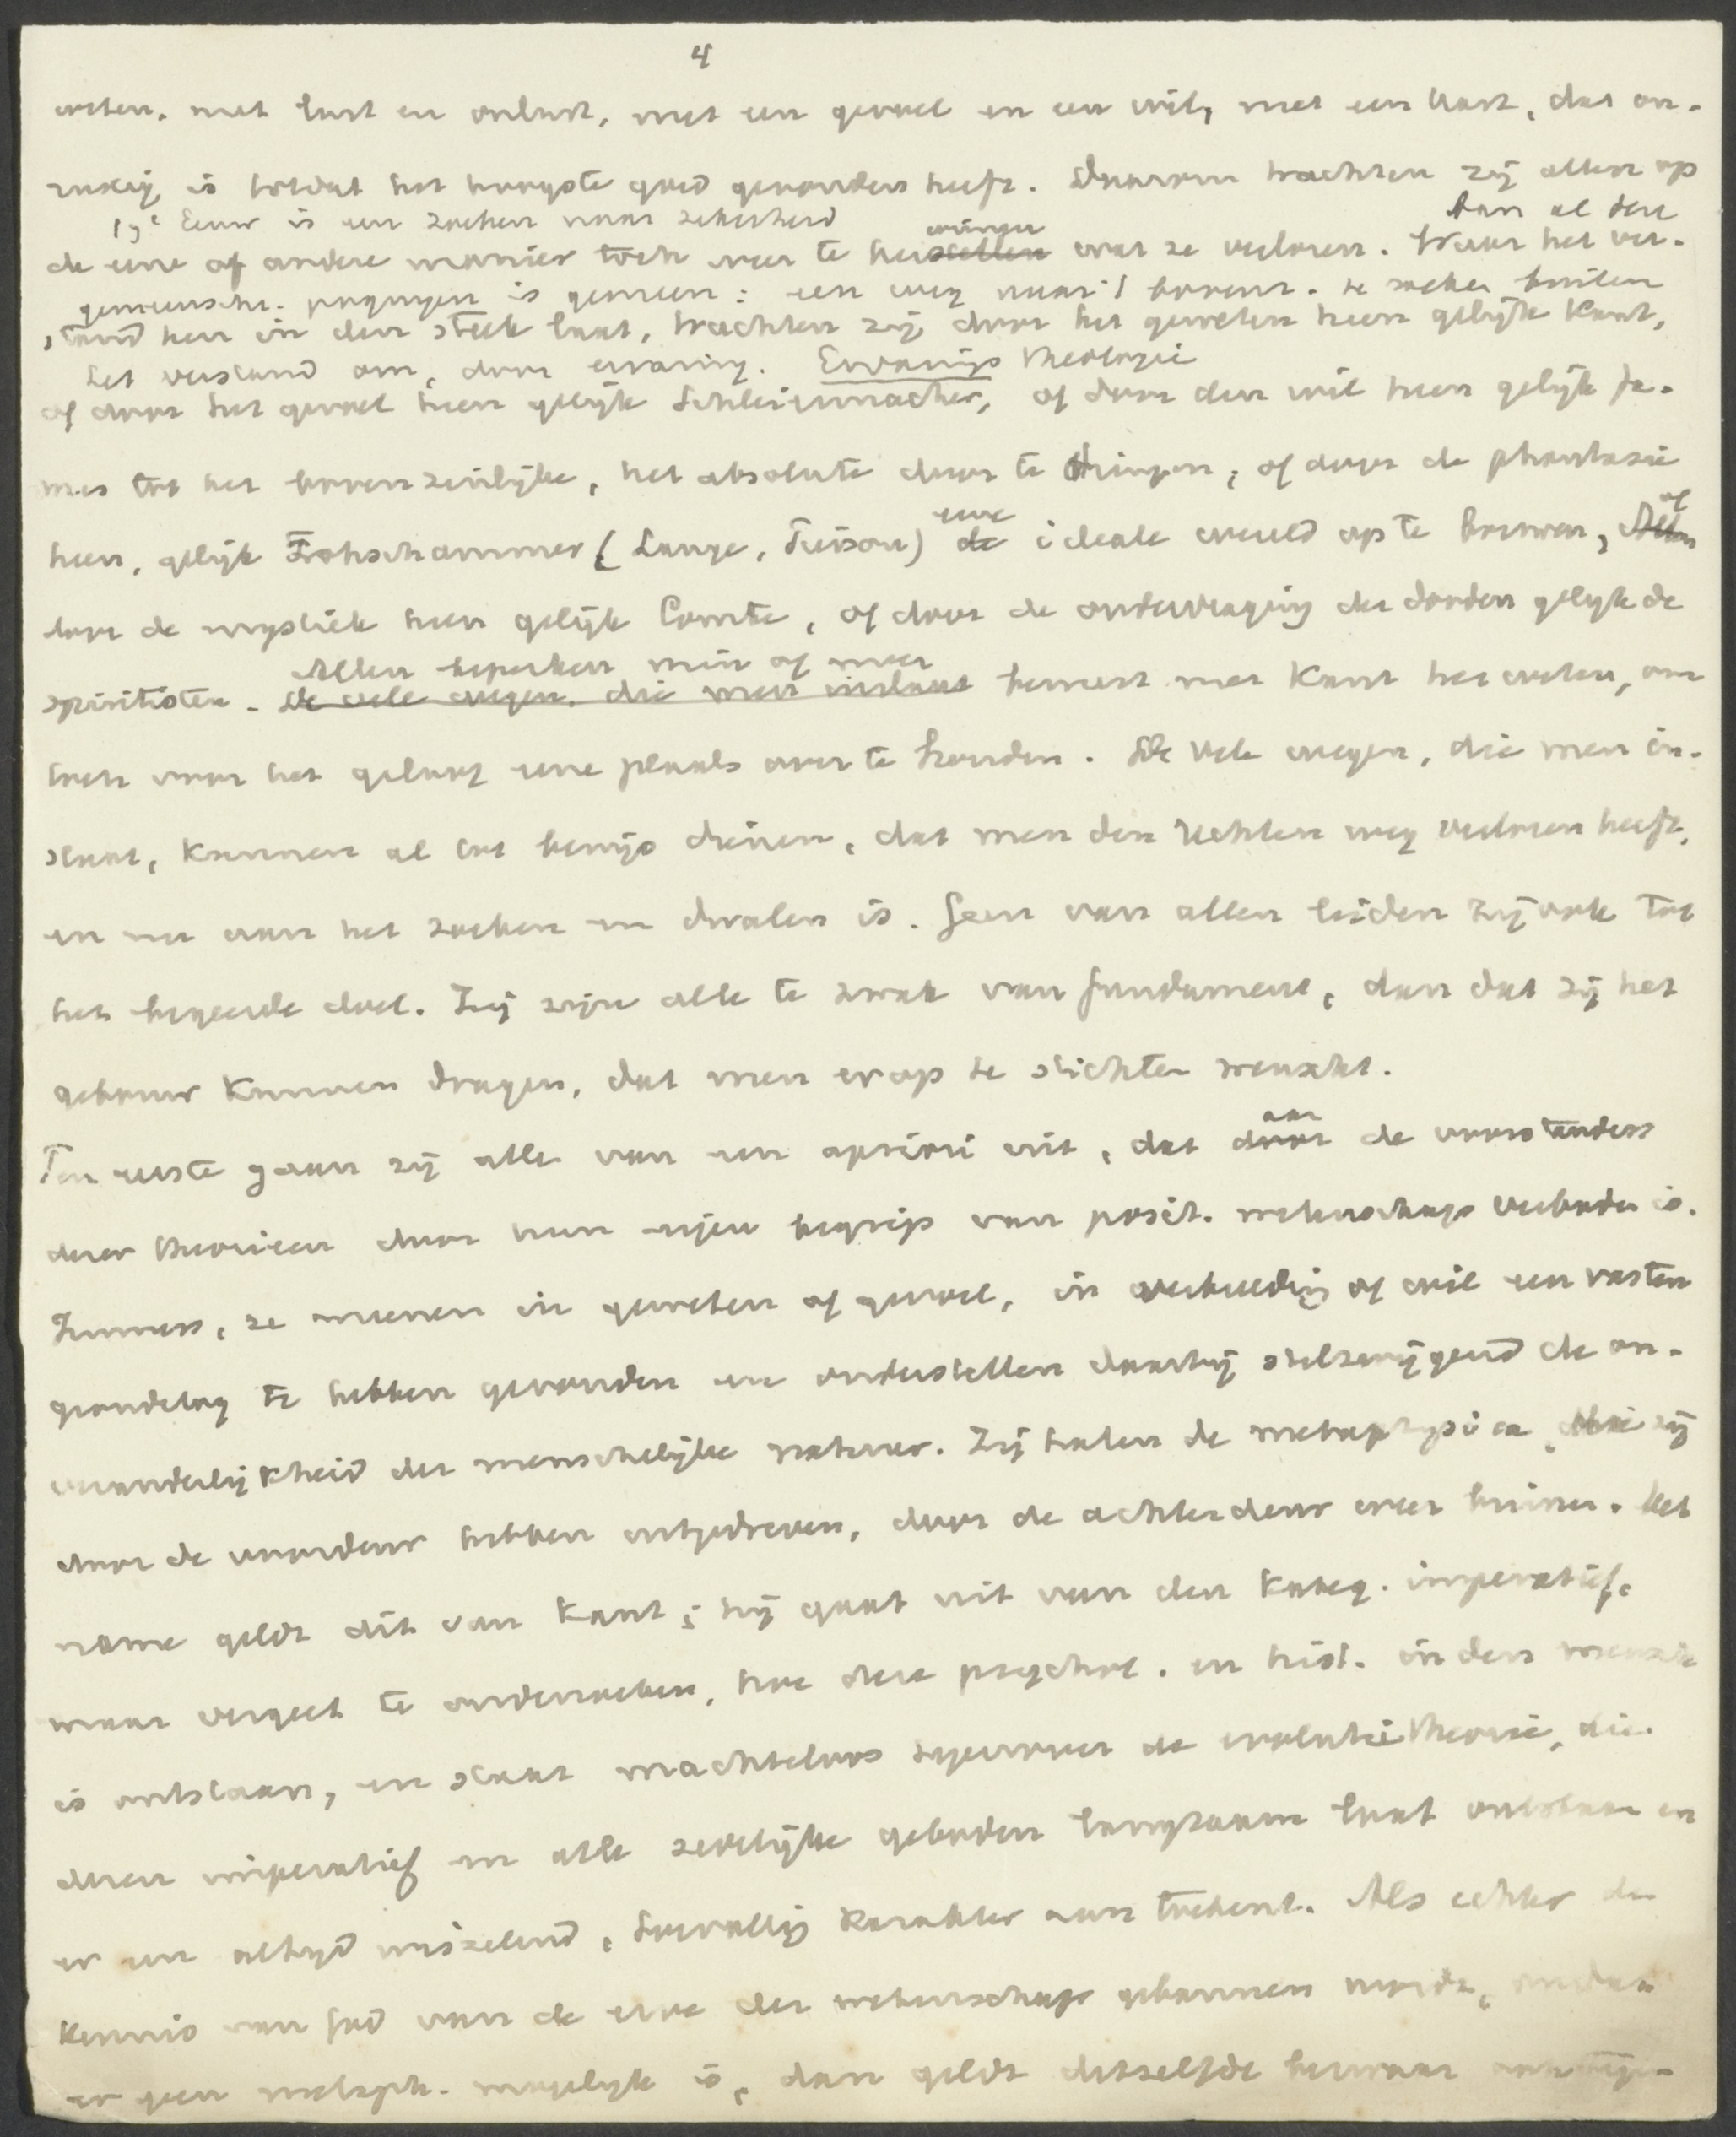 4
weten, met lust en onlust, met een gevoel en een wil, met een hart, dat on-
rustig is totdat het hoogste goed gevonden heeft. Daarom trachten zij allen op
19e Eeuw is een zoeken naar zekerheid
winnen
Aan al deze
de eene of andere manier toch weer te herstellen wat ze verloren. Waar het ver-
gemeensch. pogingen is gemeen: een weg naar 't boven. te zoeken buiten
stand hen in den steek laat, trachten zij door het geweten heen gelijk Kant,
het verstand om, door ervaring. Ervarings theologie
of door het gevoel heen gelijk Schleiermacher, of door den wil heen gelijk Ja-
mes tot het bovenzinlijke, het absolute door te dringen, of door de phantasie
eene
of
heen, gelijk Frohschammer (Lange, Pierson) de ideale wereld op te bouwen,
door de mystiek heen gelijk Comte, of door de ondervraging der dooden gelijk de
Allen beperken min of meer
spiritisten. De vele wegen, die men inslaat bewust met Kant het weten, om
toch voor het geloof eene plaats over te houden. De vele wegen, die men in-
slaat, kunnen al tot bewijs dienen, dat men den rechten weg verloren heeft,
en nu aan het zoeken en dwalen is. Geen van allen leiden zij ook tot
het begeerde doel. Zij zijn alle te zwak van fundament, dan dat zij het
gebouw kunnen dragen, dat men erop te stichten wenscht.
aan
Ten eerste gaan zij alle van een apriori uit, dat door de voorstanders
dezer theorieen door hun eigen begrip van posit. wetenschap verboden is.
Immers, ze meenen in geweten of gevoel, in verbeelding of wil een vasten
grondslag te hebben gevonden en onderstellen daarbij stilzwijgend de on-
veranderlijkheid der menschelijke natuur. Zij halen de metaphysica, die zij
door de voordeur hebben uitgedreven, door de achterdeur weer binnen. Met
name geldt dit van Kant; hij gaat uit van den kateg. imperatief,
maar vergeet te onderzoeken, hoe deze psychol. en hist. in den mensch
is ontstaan, en staat machteloos tegenover de evolutietheorie, die
dezen imperatief en alle zedelijke geboden langzaam laat ontstaan en
er een altijd wisselend, toevallig karakter aan toekent. Als echter de
kennis van God van de erve der wetenschap gebannen wordt, omdat
er geen metaph. mogelijk is, dan geldt datzelfde bezwaar